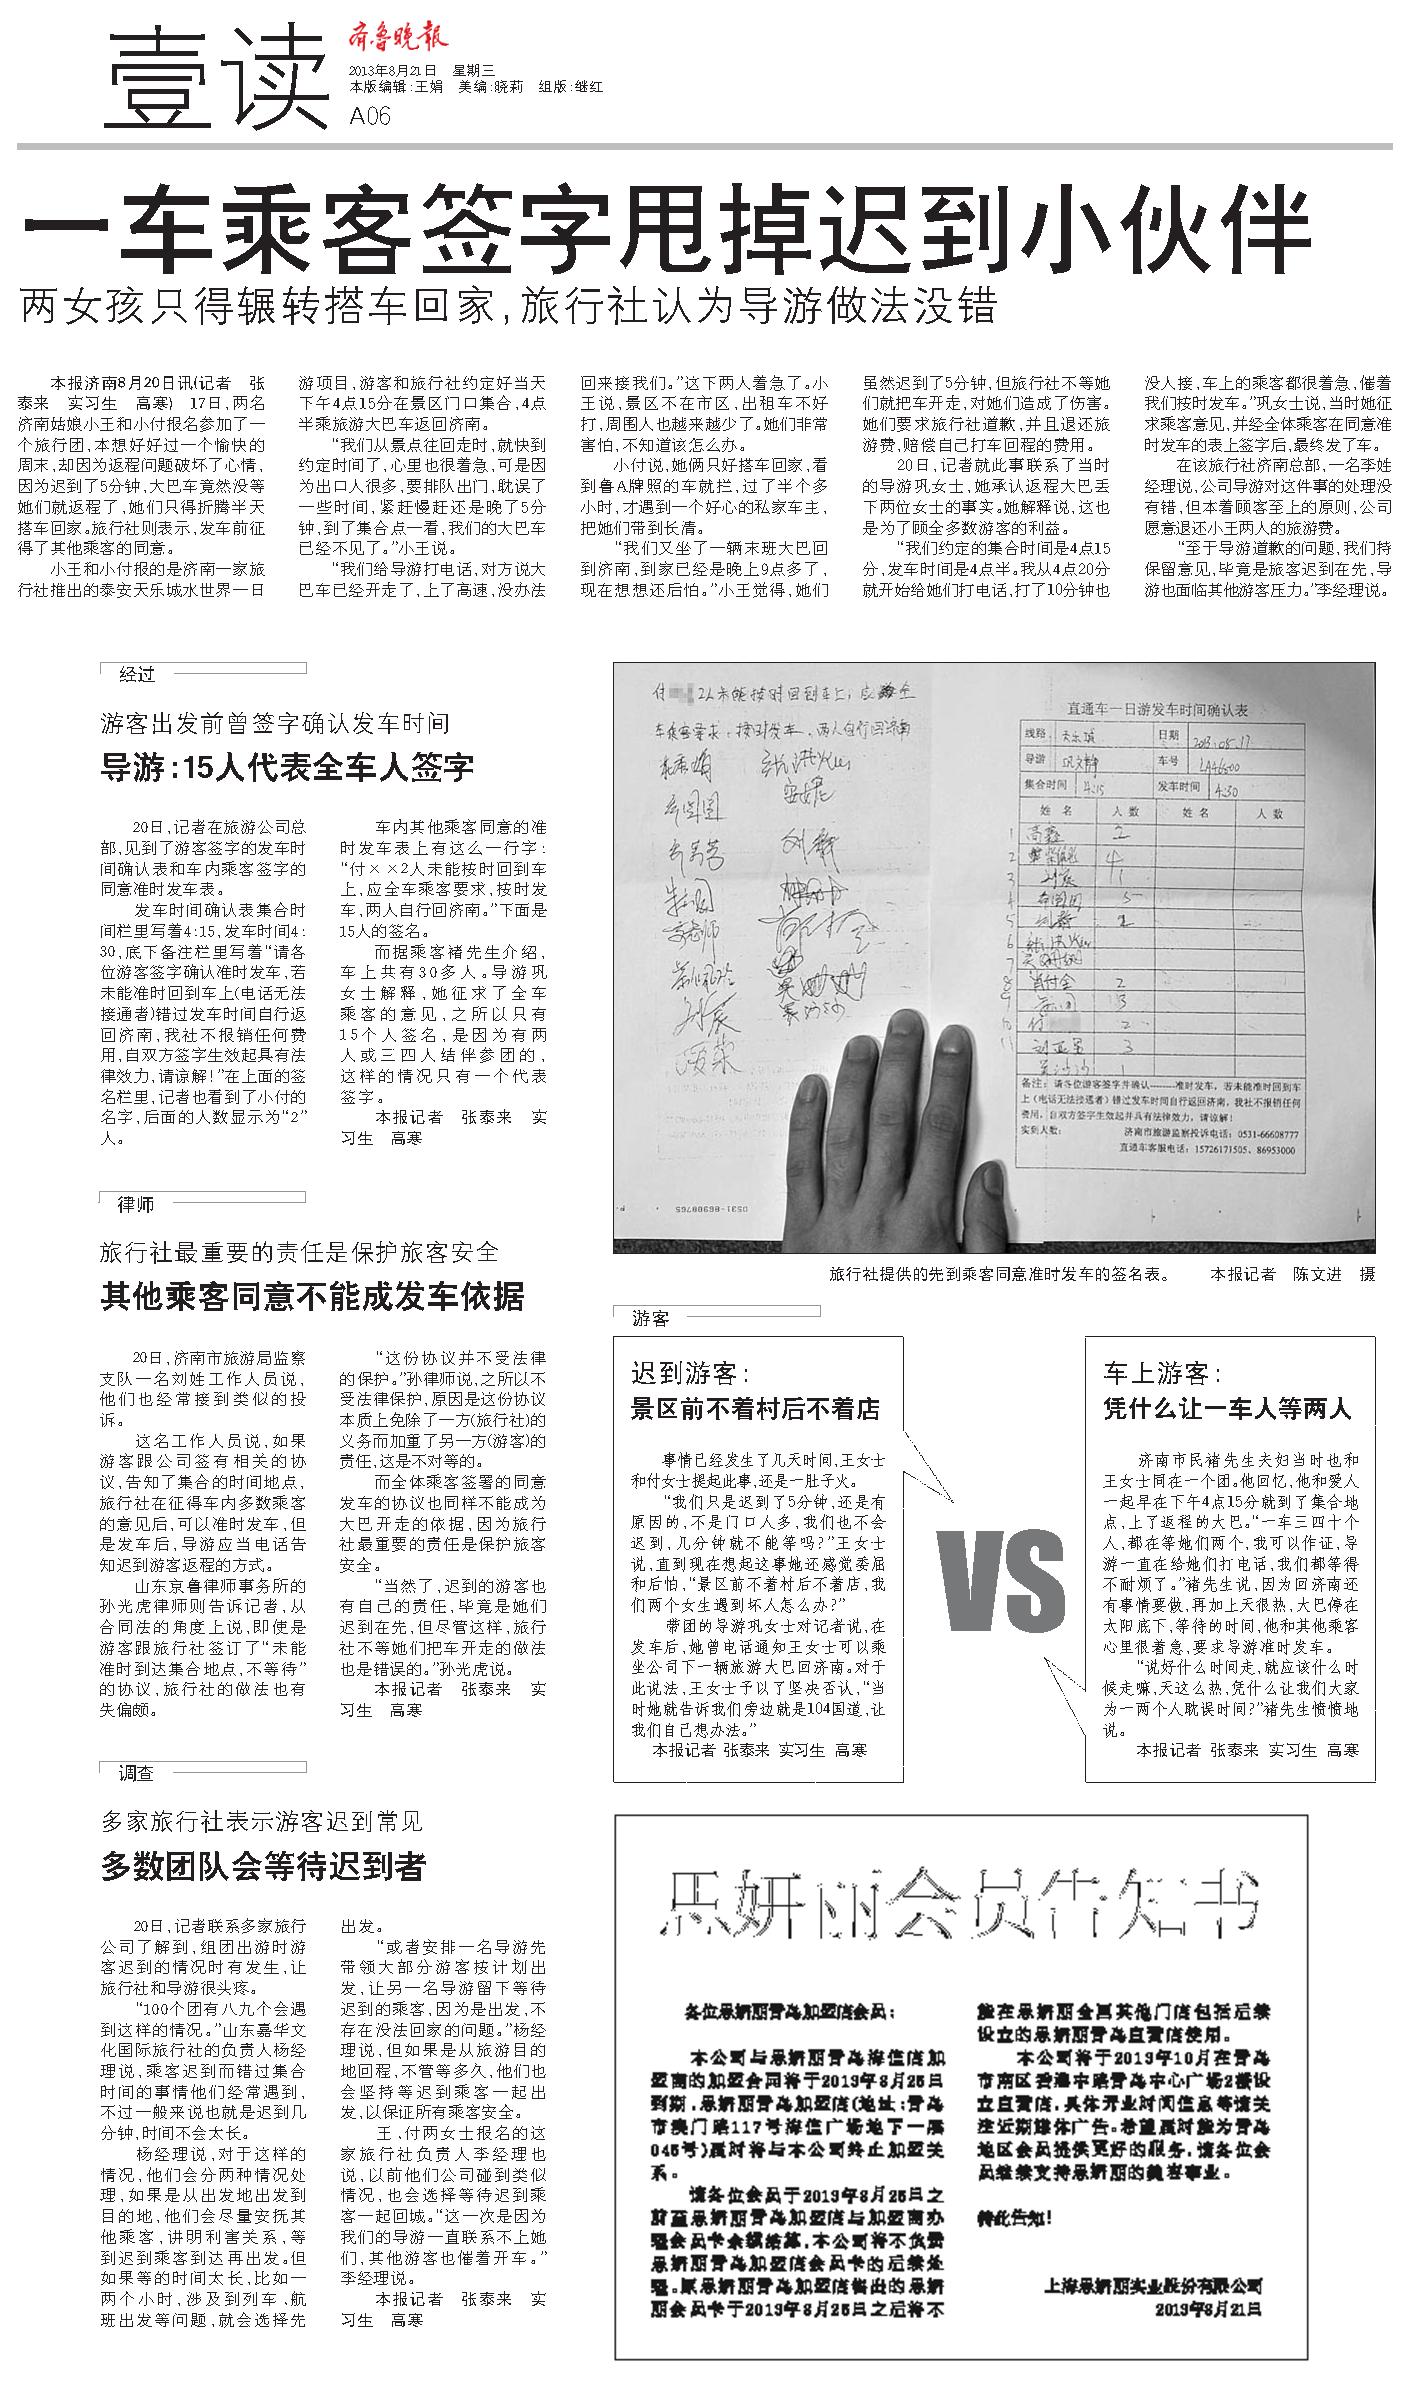 壹读
齐鲁晚报
2013年8月21日　星期三
本版编辑:王娟　美编:晓莉　组版:继红
A06
一车乘客签字甩掉迟到小伙伴
两女孩只得辗转搭车回家,旅行社认为导游做法没错
本报济南8月20日讯(记者　张
泰来　实习生　高寒)　17日,两名
济南姑娘小王和小付报名参加了一
个旅行团,本想好好过一个愉快的
周末,却因为返程问题破坏了心情,
因为迟到了5分钟,大巴车竟然没等
她们就返程了,她们只得折腾半天
搭车回家。旅行社则表示,发车前征
得了其他乘客的同意。
小王和小付报的是济南一家旅
行社推出的泰安天乐城水世界一日
游项目,游客和旅行社约定好当天
下午4点15分在景区门口集合,4点
半乘旅游大巴车返回济南。
“我们从景点往回走时,就快到
约定时间了,心里也很着急,可是因
为出口人很多,要排队出门,耽误了
一些时间,紧赶慢赶还是晚了5分
钟,到了集合点一看,我们的大巴车
已经不见了。”小王说。
“我们给导游打电话,对方说大
巴车已经开走了,上了高速,没办法
回来接我们。”这下两人着急了。小
王说,景区不在市区,出租车不好
打,周围人也越来越少了。她们非常
害怕,不知道该怎么办。
小付说,她俩只好搭车回家,看
到鲁A牌照的车就拦,过了半个多
小时,才遇到一个好心的私家车主,
把她们带到长清。
“我们又坐了一辆末班大巴回
到济南,到家已经是晚上9点多了,
现在想想还后怕。”小王觉得,她们
虽然迟到了5分钟,但旅行社不等她
们就把车开走,对她们造成了伤害。
她们要求旅行社道歉,并且退还旅
游费,赔偿自己打车回程的费用。
20日,记者就此事联系了当时
的导游巩女士,她承认返程大巴丢
下两位女士的事实。她解释说,这也
是为了顾全多数游客的利益。
“我们约定的集合时间是4点15
分,发车时间是4点半。我从4点20分
就开始给她们打电话,打了10分钟也
没人接,车上的乘客都很着急,催着
我们按时发车。”巩女士说,当时她征
求乘客意见,并经全体乘客在同意准
时发车的表上签字后,最终发了车。
在该旅行社济南总部,一名李姓
经理说,公司导游对这件事的处理没
有错,但本着顾客至上的原则,公司
愿意退还小王两人的旅游费。
“至于导游道歉的问题,我们持
保留意见,毕竟是旅客迟到在先,导
游也面临其他游客压力。”李经理说。
经过
游客出发前曾签字确认发车时间
导游:15人代表全车人签字
20日,记者在旅游公司总
部,见到了游客签字的发车时
间确认表和车内乘客签字的
同意准时发车表。
发车时间确认表集合时
间栏里写着4:15,发车时间4:
30,底下备注栏里写着“请各
位游客签字确认准时发车,若
未能准时回到车上(电话无法
接通者)错过发车时间自行返
回济南,我社不报销任何费
用,自双方签字生效起具有法
律效力,请谅解!”在上面的签
名栏里,记者也看到了小付的
名字,后面的人数显示为“2”
人。
车内其他乘客同意的准
时发车表上有这么一行字:
“付××2人未能按时回到车
上,应全车乘客要求,按时发
车,两人自行回济南。”下面是
15人的签名。
而据乘客褚先生介绍,
车上共有30多人。导游巩
女士解释,她征求了全车
乘客的意见,之所以只有
15个人签名,是因为有两
人或三四人结伴参团的,
这样的情况只有一个代表
签字。
本报记者　张泰来　实
习生　高寒
付 2人未能按时回到车上,应 全
车乘客要求,按时发车,两人自行回济南
直通车一日游发车时间确认表
线路 天乐城 日期 2013.08.17
导游 巩文静 车号
集合时间 4:15 发车时间 4:30
姓名 人数 姓名 人数
备注:请各位游客签字并确认--------准时发车,若未能准时回到车
上(电话无法接通者)错过发车时间自行返回济南,我社不报销任何
费用,自双方签字生效起并具有法律效力,请谅解!
实到人数: 济南市旅游监察投诉电话:0531-66608777
直通车客服电话:15726171505、86953000
旅行社提供的先到乘客同意准时发车的签名表。　本报记者　陈文进　摄
律师
旅行社最重要的责任是保护旅客安全
其他乘客同意不能成发车依据
20日,济南市旅游局监察
支队一名刘姓工作人员说,
他们也经常接到类似的投
诉。
这名工作人员说,如果
游客跟公司签有相关的协
议,告知了集合的时间地点,
旅行社在征得车内多数乘客
的意见后,可以准时发车,但
是发车后,导游应当电话告
知迟到游客返程的方式。
山东京鲁律师事务所的
孙光虎律师则告诉记者,从
合同法的角度上说,即使是
游客跟旅行社签订了“未能
准时到达集合地点,不等待”
的协议,旅行社的做法也有
失偏颇。
“这份协议并不受法律
的保护。”孙律师说,之所以不
受法律保护,原因是这份协议
本质上免除了一方(旅行社)的
义务而加重了另一方(游客)的
责任,这是不对等的。
而全体乘客签署的同意
发车的协议也同样不能成为
大巴开走的依据,因为旅行
社最重要的责任是保护旅客
安全。
“当然了,迟到的游客也
有自己的责任,毕竟是她们
迟到在先,但尽管这样,旅行
社不等她们把车开走的做法
也是错误的。”孙光虎说。
本报记者　张泰来　实
习生　高寒
游客
迟到游客:
景区前不着村后不着店
事情已经发生了几天时间,王女士
和付女士提起此事,还是一肚子火。
“我们只是迟到了5分钟,还是有
原因的,不是门口人多,我们也不会
迟到,几分钟就不能等吗?”王女士
说,直到现在想起这事她还感觉委屈
和后怕,“景区前不着村后不着店,我
们两个女生遇到坏人怎么办?”
带团的导游巩女士对记者说,在
发车后,她曾电话通知王女士可以乘
坐公司下一辆旅游大巴回济南。对于
此说法,王女士予以了坚决否认,“当
时她就告诉我们旁边就是104国道,让
我们自己想办法。”
本报记者 张泰来 实习生 高寒
VS
车上游客:
凭什么让一车人等两人
济南市民褚先生夫妇当时也和
王女士同在一个团。他回忆,他和爱人
一起早在下午4点15分就到了集合地
点,上了返程的大巴。“一车三四十个
人,都在等她们两个,我可以作证,导
游一直在给她们打电话,我们都等得
不耐烦了。”褚先生说,因为回济南还
有事情要做,再加上天很热,大巴停在
太阳底下,等待的时间,他和其他乘客
心里很着急,要求导游准时发车。
“说好什么时间走,就应该什么时
候走嘛,天这么热,凭什么让我们大家
为一两个人耽误时间?”褚先生愤愤地
说。
本报记者 张泰来 实习生 高寒
调查
多家旅行社表示游客迟到常见
多数团队会等待迟到者
20日,记者联系多家旅行
公司了解到,组团出游时游
客迟到的情况时有发生,让
旅行社和导游很头疼。
“100个团有八九个会遇
到这样的情况。”山东嘉华文
化国际旅行社的负责人杨经
理说,乘客迟到而错过集合
时间的事情他们经常遇到,
不过一般来说也就是迟到几
分钟,时间不会太长。
杨经理说,对于这样的
情况,他们会分两种情况处
理,如果是从出发地出发到
目的地,他们会尽量安抚其
他乘客,讲明利害关系,等
到迟到乘客到达再出发。但
如果等的时间太长,比如一
两个小时,涉及到列车、航
班出发等问题,就会选择先
出发。
“或者安排一名导游先
带领大部分游客按计划出
发,让另一名导游留下等待
迟到的乘客,因为是出发,不
存在没法回家的问题。”杨经
理说,但如果是从旅游目的
地回程,不管等多久,他们也
会坚持等迟到乘客一起出
发,以保证所有乘客安全。
王、付两女士报名的这
家旅行社负责人李经理也
说,以前他们公司碰到类似
情况,也会选择等待迟到乘
客一起回城。“这一次是因为
我们的导游一直联系不上她
们,其他游客也催着开车。”
李经理说。
本报记者　张泰来　实
习生　高寒
思妍丽会员告知书
各位思妍丽青岛加盟店会员:
本公司与思妍丽青岛海信店加
盟商的加盟合同将于2013年8月25日
到期,思妍丽青岛加盟店(地址:青岛
市澳门路117号海信广场地下一层
045号)届时将与本公司终止加盟关
系。
请各位会员于2013年8月25日之
前至思妍丽青岛加盟店与加盟商办
理会员卡余额结算,本公司将不负责
思妍丽青岛加盟店会员卡的后续处
理。原思妍丽青岛加盟店售出的思妍
丽会员卡于2013年8月25日之后将不
能在思妍丽全国其他门店包括后续
设立的思妍丽青岛直营店使用。
本公司将于2013年10月在青岛
市南区香港中路青岛中心广场2楼设
立直营店,具体开业时间信息等请关
注近期媒体广告。希望届时能为青岛
地区会员提供更好的服务,请各位会
员继续支持思妍丽的美容事业。
特此告知!
上海思妍丽实业股份有限公司
2013年8月21日